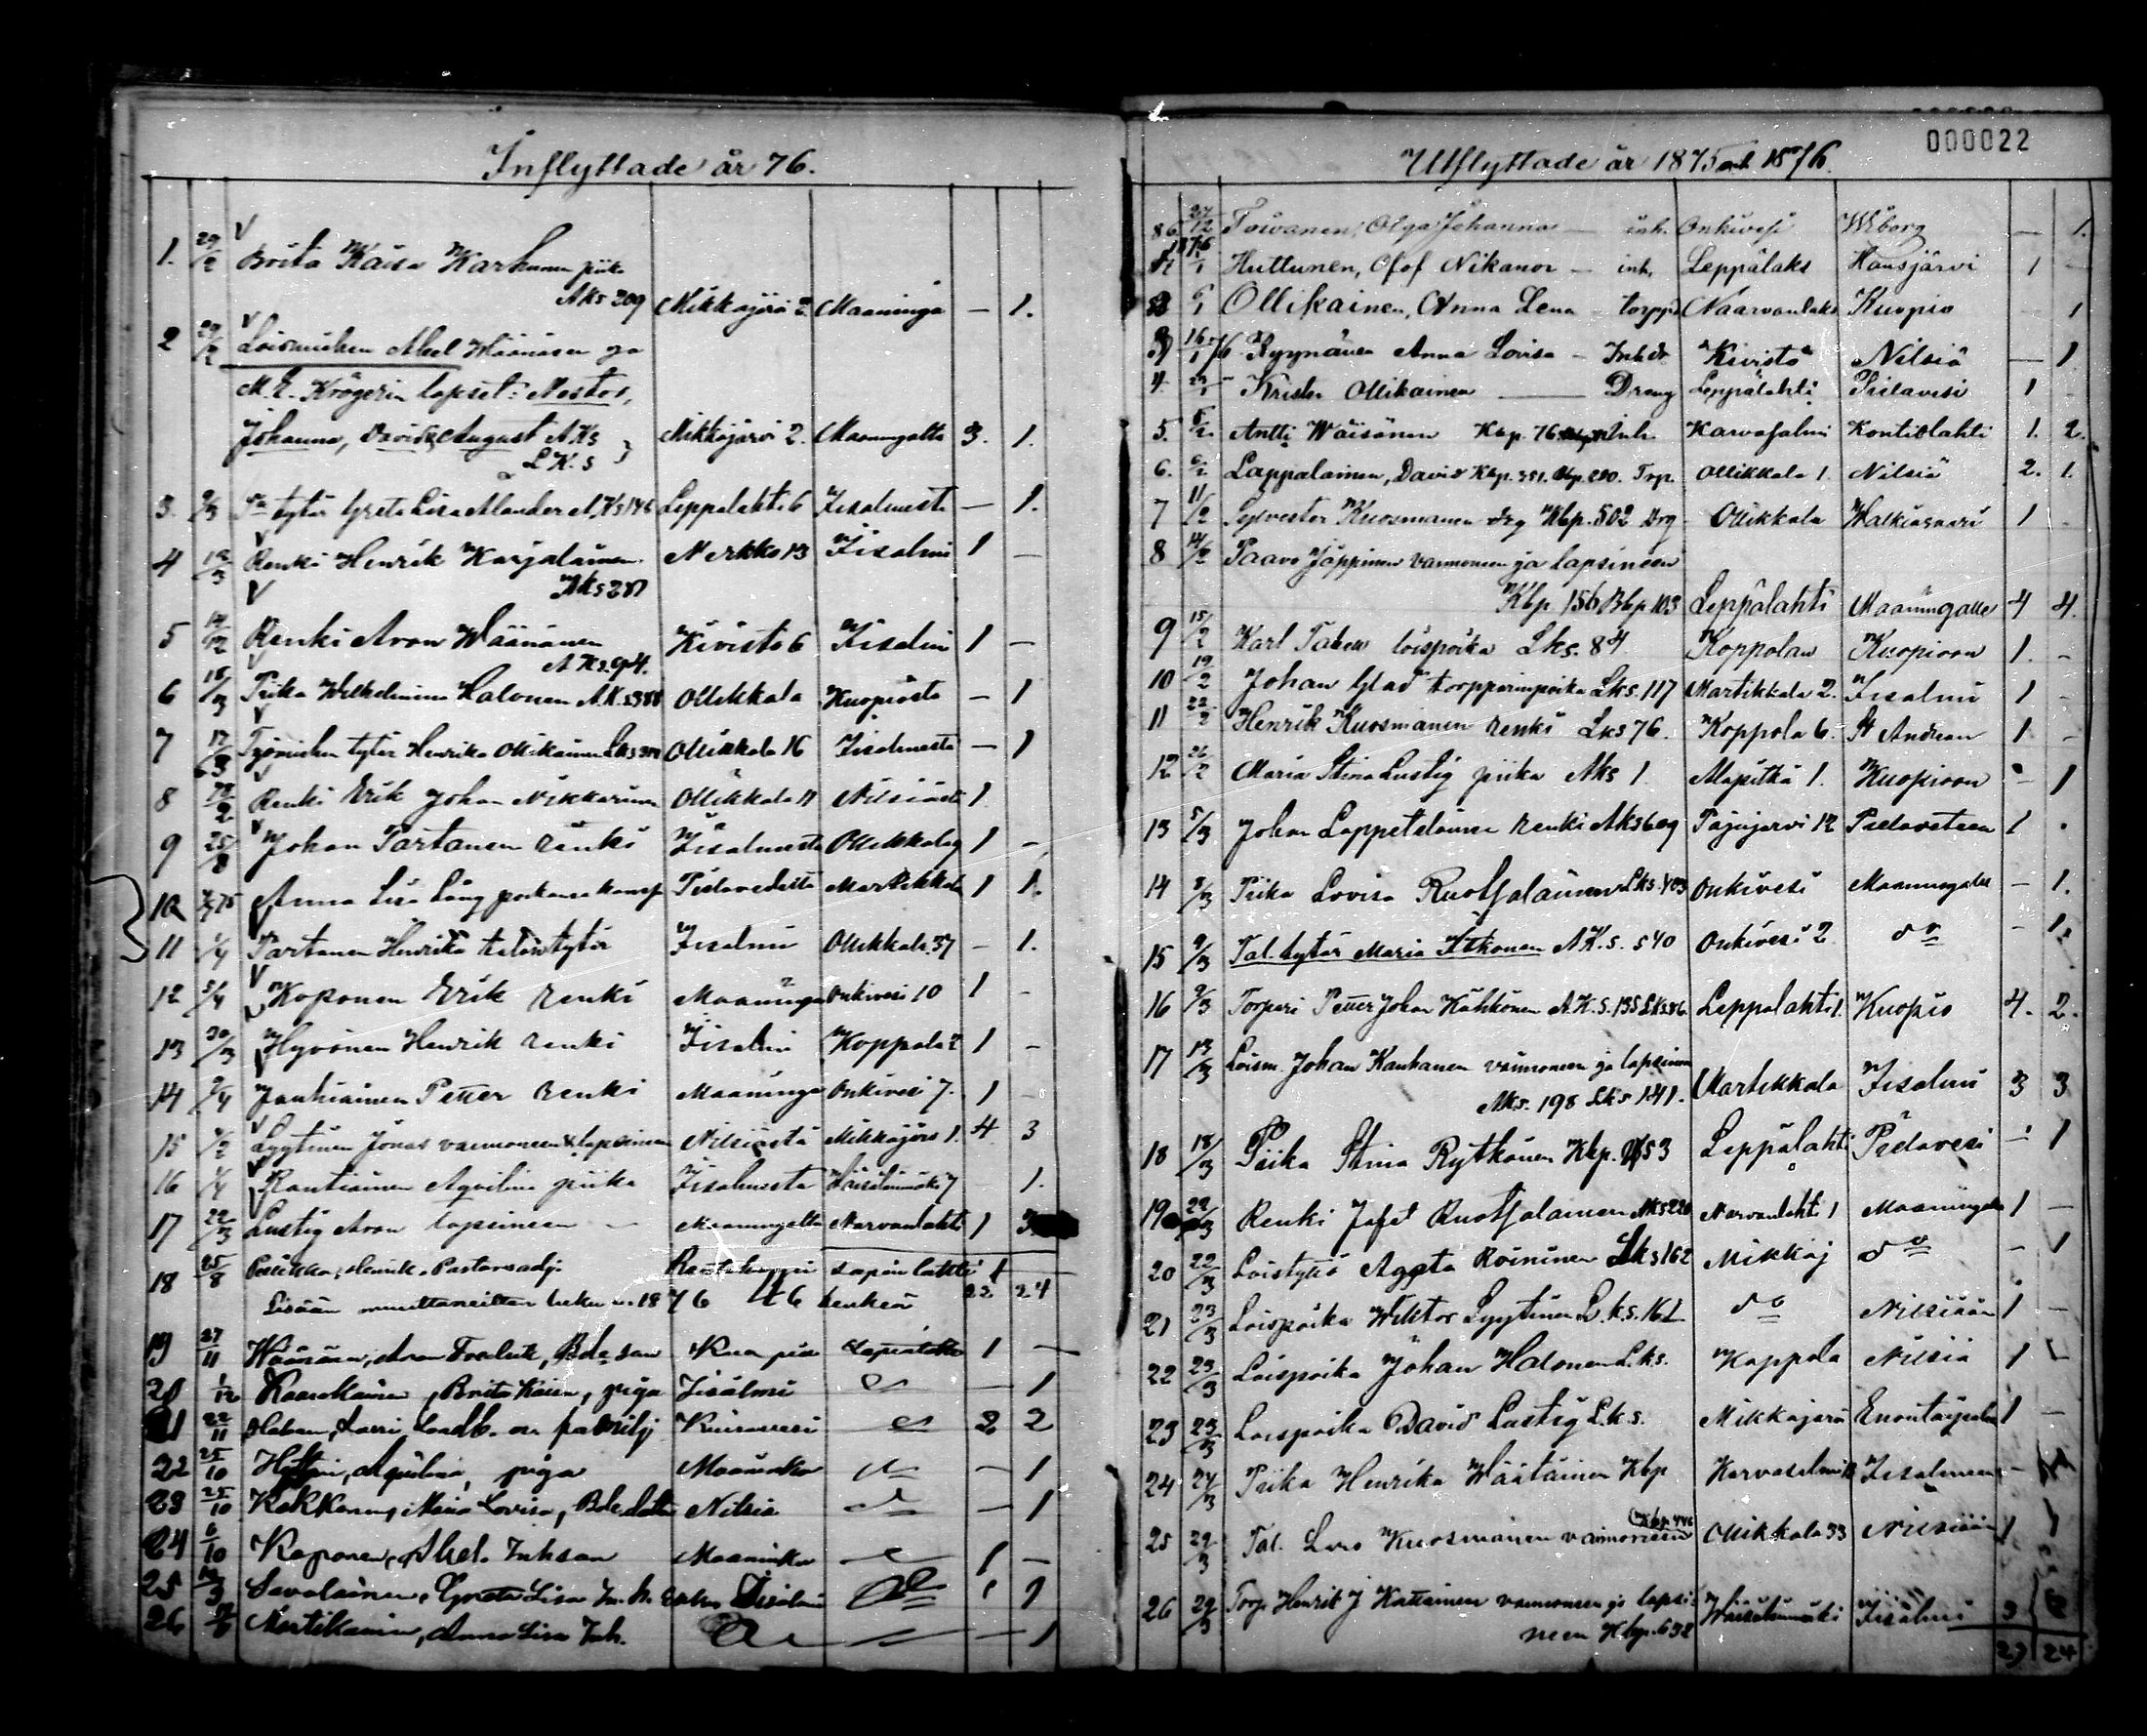 Inflyttade år 76.
1. 29/2 Brita Kaisa Karhunen piika
Aks 209 Mikkajärvi 2. Maaninga — 1.
2 29/2 Loismiehen Abel Wäänäsen ja
M. E. Krögerin lapset: Nestor,
Johanna, David & August AKs Mikkajärvi 2. Maaningalta 3. 1.
LK. s
3. 9/3 tytär Greta Lisa Alander A.Ks 146 Leppälahti 6 Iisalmesta — 1.
4 12/3 Renki Henrik Karjalainen Nerkko 13 Iisalmi 1 —
Aks 281
5 14/12 Renki Aron Wäänänen Kivistö 6 Iisalmi 1 —
A Ks. 94.
6 18/3 Piika Wilhelmina Halonen A.K.s 388 Ollikkala Kuopiosta — 1
7 17/3 Työmiehen tytär Henrika Ollikainen Lks Ollikkala 16 Iisalmesta — 1
8 Renki Erik Johan Nikkarinen Ollikkala 11 Nilsiästä 1
9 25/8 Johan Partanen renki Iisalmesta Ollikkala 1 —
10 75 Anna Lisa Lång poikansa kanssa Pielavedeltä Martikkala 1 1.
11 1/4 Partanen Henrika talontytär Iisalmi Ollikkala 37 — 1.
12 5/4 Koponen Erik renki Maaninga Onkivesi 10 1 -
13 30/3 Hyvönen Henrik renki Iisalmi Koppola 2 1 -
14 9/4 Jauhiainen Petter renki Maaninga Onkivesi 7. 1 -
15 Lyytinen Jonas vaimoneen & lapsineen Nilsiästä Mikkajärvi 1. 4. 3
16 1/4 Rautiainen Aqvilina piika Iisalmesta Väisälänmäki 7 1.
17 22/3 Lustig Aron lapsineen — Maaningalta Narvanlahti 1 3
18 25/8 Henrik, Pastorsadj. Lapinlahti 1
Lisään muuttaneitten luku v. 1876 46 henkeä 22 24
19 27/11 Wäänänen, Aron Fredrik, Bde son Kuopio Lapinlahti 1 —
20 1/12 Brita Kaisa, piga Iisalmi — 1
21 22/11 familj Kiuruvesi 2 2
22 25/10 Aqvilina, piga Maaninka — 1
23 25/10 Kekkonen, Maria Lovisa, Bde dotter Nilsiä — 1
24 6/10 Koponen, Abel. Inhson Maaninka 1 —
25 Savolainen, Greta Lisa Inh. Iisalmi 1 1
26 Anna Lisa Inh. — 1
000022
Utflyttade år 1875 och 1876.
86 27/12 Toivanen, Olga Johanna — inh. Onkivesi Wiborg — 1.
1876
1 Huttunen, Olof Nikanor — inh. Leppälaks Hausjärvi 1 —
2 Ollikainen, Anna Lena — torpp. Naarvanlaks Kuopio — 1
3 16/1 76 Ryynänen Anna Lovisa — Inh dr Kivistö Nilsiä — 1
4. Krister Ollikainen — Dreng Leppälahti Pielavesi 1
5. 5/2 Antti Wäisänen Kbp. 76 Inh. Karvasalmi Kontiolahti 1. 2.
6. 6/2 Lappalainen, David Kbp. 351. 280. Trp. Ollikkala 1. Nilsiä 2. 1.
7 11/2 Sylvester Kuosmanen drg Kbp. 502 Drg Ollikkala Walkiasaari 1
8 14/2 Paavo Jäppinen vaimoneen ja lapsineen
Kbp 156 Bbp 103 Leppälahti Maaningalle 4 4.
9 15/2 Karl Taben loispoika Lks. 84 Koppolan Kuopioon 1. -
10 19/2 Johan Glad torpparinpoika Lks. 117 Martikkala 2. Iisalmi 1 -
11 22/2 Henrik Kuosmanen renki Lks 76. Koppola 6. St Andreæ 1 -
12 26/2 Maria Stina Lustig piika Aks 1. Alapitkä 1. Kuopioon - 1
13 5/3 Johan Lappeteläinen renki Aks 609 Pajujärvi 12 Pielaveteen 1 .
14 8/3 Piika Lovisa Ruotsalainen Lks. 403 Onkivesi Maaningalle — 1.
15 9/3 Tal. tytär Maria Itkonen A.K.s. 540 Onkivesi 2 do — 1.
16 9/3 Torpari Petter Johan Kähkönen A.K.S. 135 Lks. 86 Leppälahti 1. Kuopio 4. 2.
17 13/3 Loism. Johan Kauhanen vaimoneen ja lapsineen
Aks. 198 Lks 141. Martikkala Iisalmi 3 3
18 18/3 Piika Stina Rytkönen Kbp. 453 Leppälahti Pielavesi — 1
19 22/3 Renki Jafet Ruotsalainen Aks 220 Narvanlahti 1 Maaningalle 1 —
20 22/3 Loistyttö Agata Roininen Lks 162 Mikkaj do — 1
21 23/3 Loispoika Wiktor Lyytinen L.ks. 161 do Nilsiään 1 —
22 23/3 Loispoika Johan Halonen L.ks. Koppola Nilsiä 1 —
23 23/3 Loispoika David Lustig L.k.s. Mikkajärvi 1 —
24 24/3 Piika Henrika Wäätäinen Kbp Karvasalmi Iisalmeen — 1
25 29/3 Tal. Lars Kuosmanen vaimoneen Kbp. 446 Ollikkala 33 Nilsiään 1 1
26 29/3 Torp. Henrik J Kattainen vaimoneen ja lapsi-
neen Kbp. 632 Väisälänmäki Iisalmi 3
24